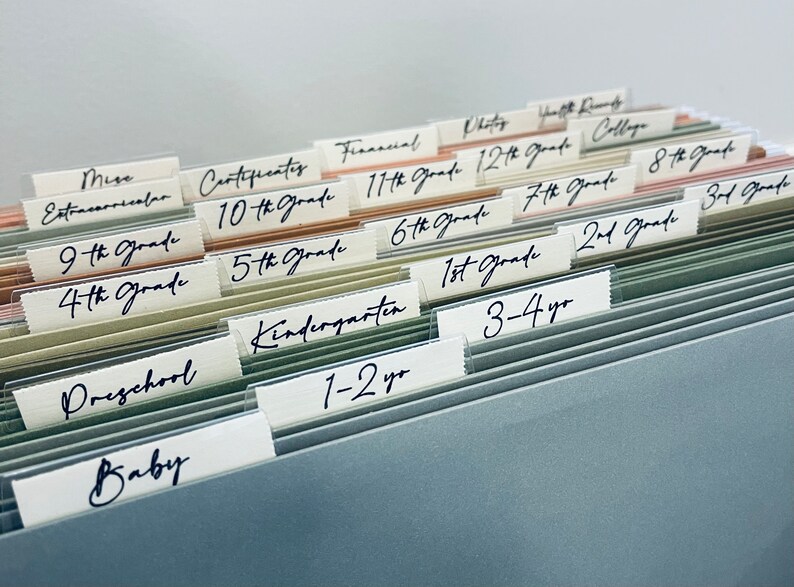 Health Records
Photos
College
Financial
Certificates
Misc
12th Grade
8th Grade
11th Grade
10th Grade
Extracurricular
7th Grade
3rd Grade
6th Grade
2nd Grade
5th Grade
9th Grade
1st Grade
4th Grade
3-4 yo
Kindergarten
Preschool
1-2 yo
Baby